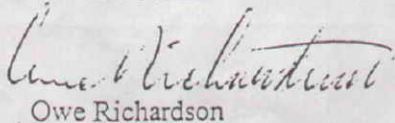 Owe Richardson
Owe Richardson